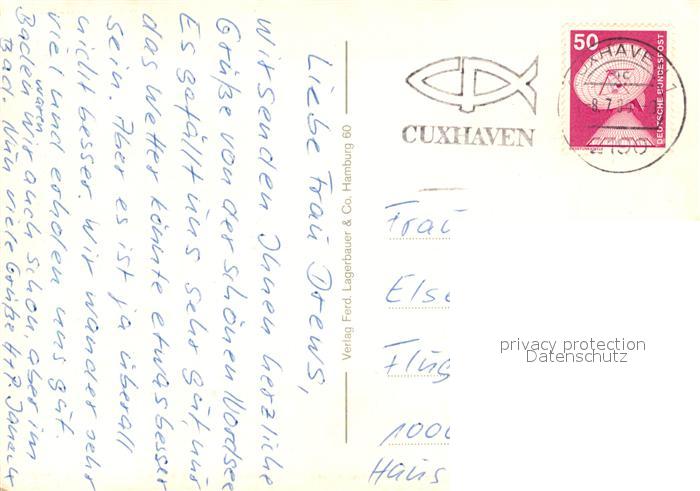 Liebe Frau Drews,
Wir senden Ihnen herzliche
Grüße von der schönen Nordsee
Es gefällt uns sehr gut, nur
das Wetter könnte etwas besser
sein. Aber es ist ja überall
nicht besser. Wir wandern sehr
viel und erholen uns gut.
Baden waren wir auch schon, aber im
Bad. Nun viele Grüße
Verlag Ferd. Lagerbauer & Co. Hamburg 60
CUXHAVEN
50
DEUTSCHE BUNDESPOST
CUXHAVEN 1
8.7.8
2190
Frau
Else
Flug
1000
Haus
privacy protection
Datenschutz